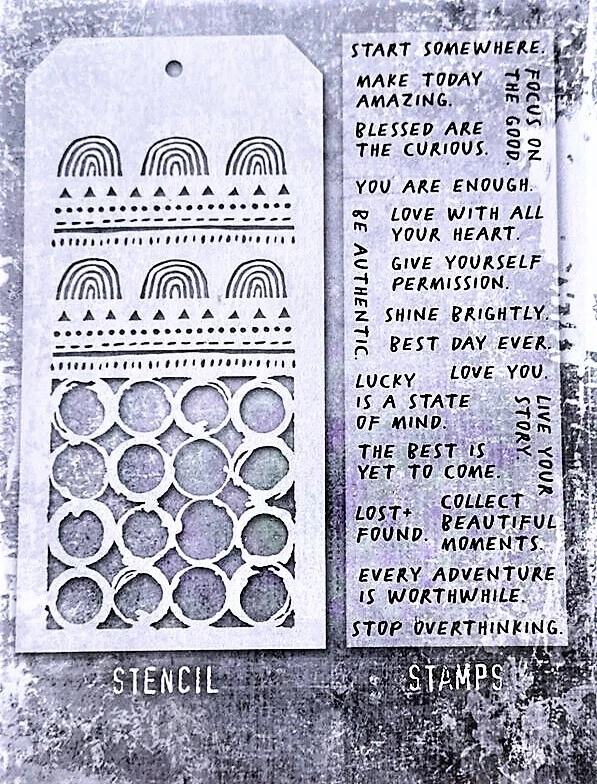 START SOMEWHERE.
MAKE TODAY
AMAZING.
FOCUS ON
THE GOOD.
BLESSED ARE
THE CURIOUS.
YOU ARE ENOUGH.
BE AUTHENTIC.
LOVE WITH ALL
YOUR HEART.
GIVE YOURSELF
PERMISSION.
SHINE BRIGHTLY.
BEST DAY EVER.
LOVE YOU.
LUCKY
IS A STATE
OF MIND.
LIVE YOUR
STORY
THE BEST IS
YET TO COME.
LOST+
FOUND.
COLLECT
BEAUTIFUL
MOMENTS.
EVERY ADVENTURE
IS WORTHWHILE.
STOP OVERTHINKING.
STENCIL
STAMPS